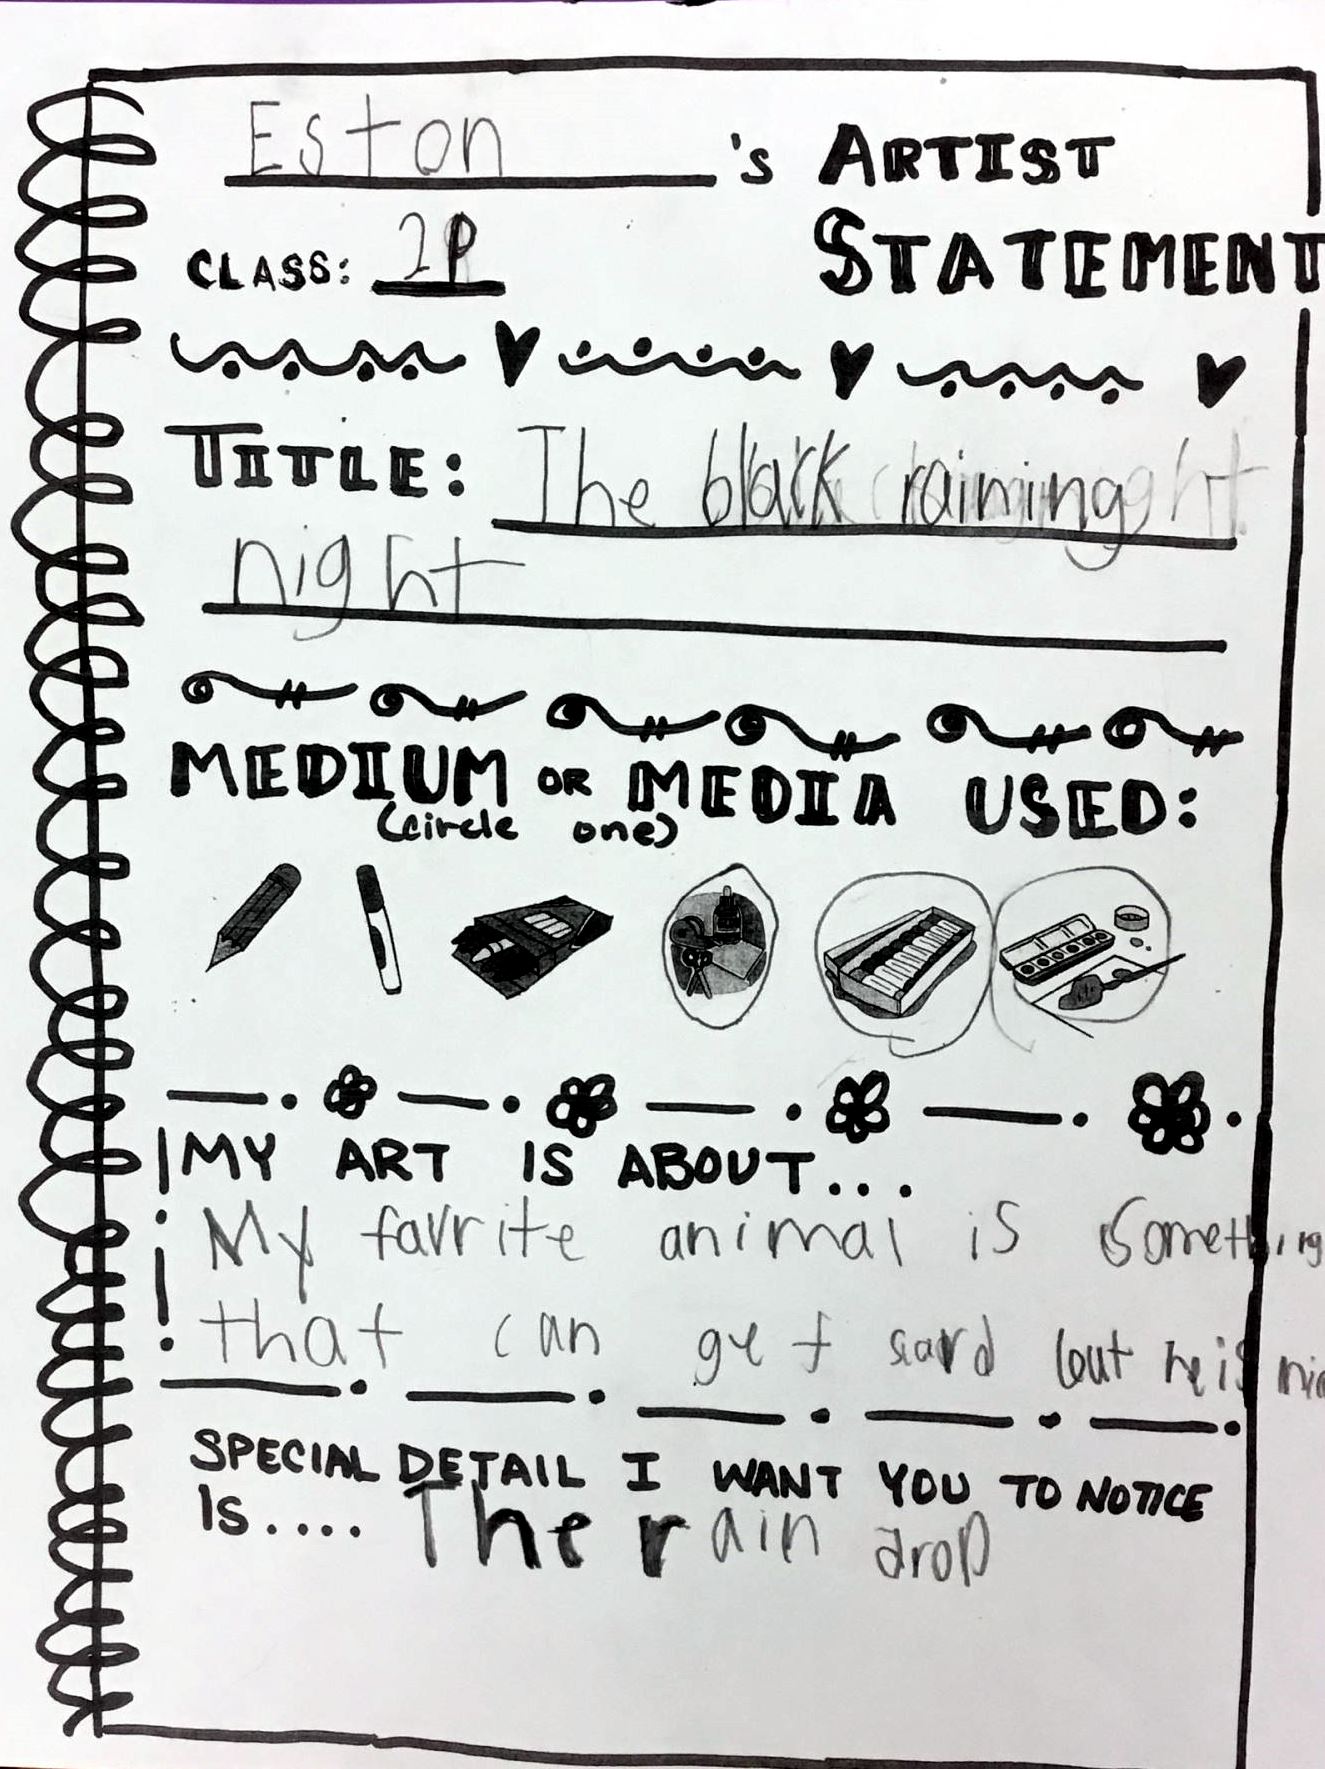 Eston 's ARTIST
CLASS: 2P STATEMENT
TITLE: The black raining
night
MEDIUM OR MEDIA USED:
(circle one)
MY ART IS ABOUT...
My favrite animal is something
that can get sard but he is
SPECIAL DETAIL I WANT YOU TO NOTICE
IS.... The rain drop